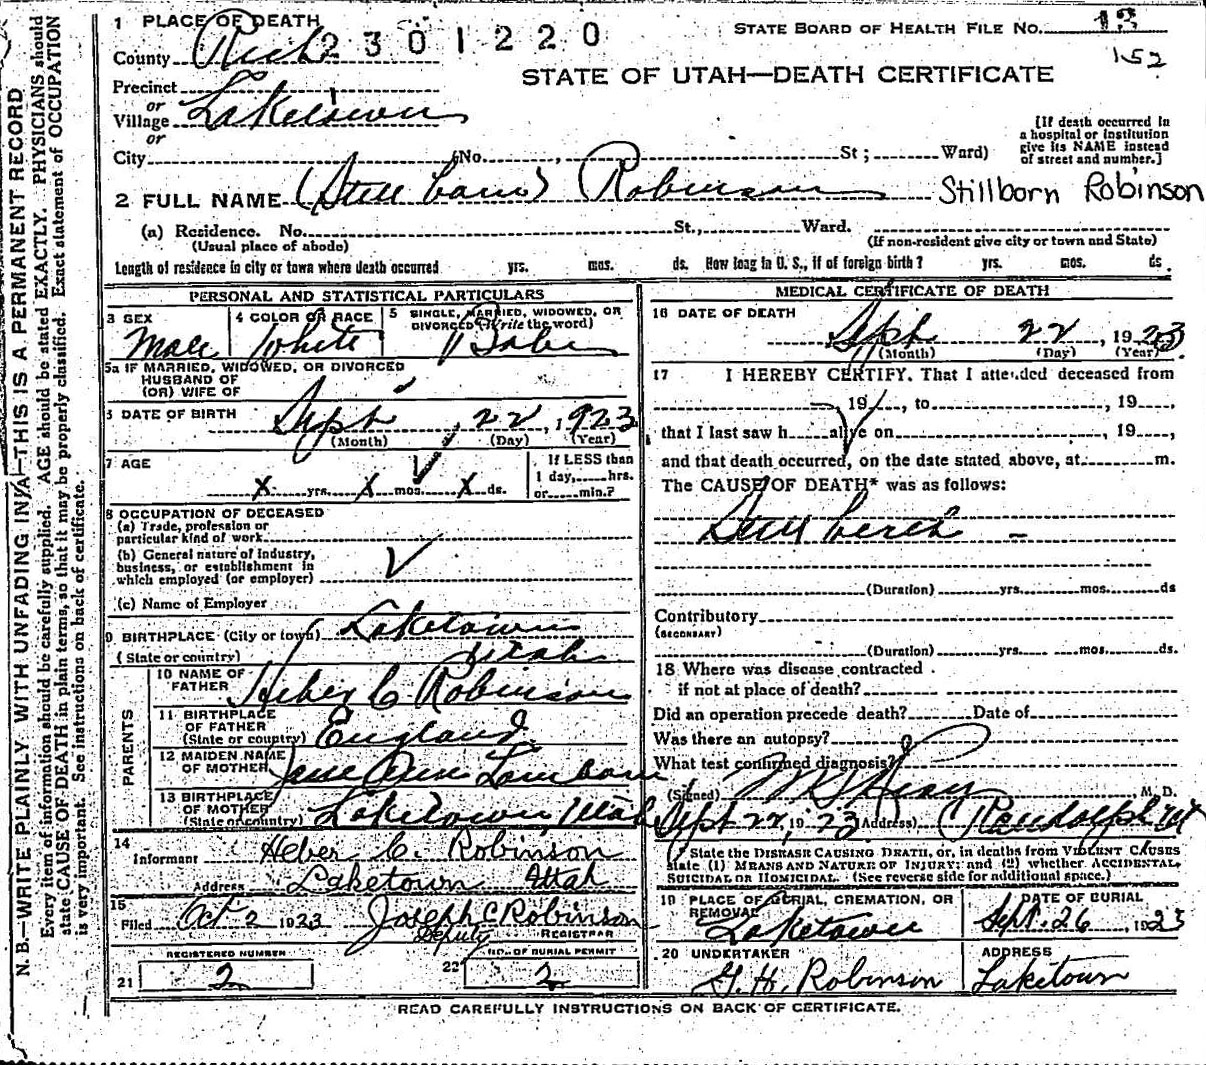 1 PLACE OF DEATH
STATE BOARD OF HEALTH FILE No. 13
County Rich 2301220
152
STATE OF UTAH—DEATH CERTIFICATE
Precinct
or
Village Laketown
or
City (No. , St ; Ward)
[If death occurred in
a hospital or institution
give its NAME instead
of street and number.]
2 FULL NAME (Still born) Robinson Stillborn Robinson
(a) Residence. No. St., Ward.
(Usual place of abode) (If non-resident give city or town and State)
Length of residence in city or town where death occurred yrs. mos. ds. How long in U. S., if of foreign birth? yrs. mos. ds.
PERSONAL AND STATISTICAL PARTICULARS
3 SEX
Male
4 COLOR OR RACE
White
5 SINGLE, MARRIED, WIDOWED, OR
DIVORCED (Write the word)
5a IF MARRIED, WIDOWED, OR DIVORCED
HUSBAND OF
(OR) WIFE OF
DATE OF BIRTH Sept 22, 1923
(Month) (Day) (Year)
7 AGE
X yrs. X mos. X ds.
If LESS than
1 day, hrs.
or min.?
8 OCCUPATION OF DECEASED
(a) Trade, profession or
particular kind of work
(b) General nature of industry,
business, or establishment in
which employed (or employer)
(c) Name of Employer
9 BIRTHPLACE (City or town) Laketown
(State or country) Utah
PARENTS
10 NAME OF
FATHER Heber C Robinson
11 BIRTHPLACE
OF FATHER
(State or country) England
12 MAIDEN NAME
OF MOTHER Jane Ann
13 BIRTHPLACE
OF MOTHER
(State or country) Laketown, Utah
14
Informant Heber C. Robinson
Address Laketown Utah
15
Filed Oct 2 1923 Joseph C Robinson
Deputy REGISTRAR
REGISTERED NUMBER
21 2
NO. OF BURIAL PERMIT
22 2
MEDICAL CERTIFICATE OF DEATH
16 DATE OF DEATH
Sept 22 1923
(Month) (Day) (Year)
17 I HEREBY CERTIFY, That I attended deceased from
19 , to , 19 ,
that I last saw h alive on , 19 ,
and that death occurred, on the date stated above, at m.
The CAUSE OF DEATH* was as follows:
Still birth
(Duration) yrs. mos. ds
Contributory
(SECONDARY)
(Duration) yrs. mos. ds.
18 Where was disease contracted
if not at place of death?
Did an operation precede death? Date of
Was there an autopsy?
What test confirmed diagnosis?
(Signed) M. D.
Sept 22, 1923 (Address) Randolph Ut
State the DISEASE CAUSING DEATH, or, in deaths from VIOLENT CAUSES
state (1) MEANS AND NATURE OF INJURY; and (2) whether ACCIDENTAL,
SUICIDAL OR HOMICIDAL. (See reverse side for additional space.)
19 PLACE OF BURIAL, CREMATION, OR
REMOVAL
Laketown
DATE OF BURIAL
Sept. 26, 1923
20 UNDERTAKER
G. H. Robinson
ADDRESS
Laketown
READ CAREFULLY INSTRUCTIONS ON BACK OF CERTIFICATE.
N. B.—WRITE PLAINLY WITH UNFADING INK—THIS IS A PERMANENT RECORD
Every item of information should be carefully supplied. AGE should be stated EXACTLY. PHYSICIANS should
state CAUSE OF DEATH in plain terms, so that it may be properly classified. Exact statement of OCCUPATION
is very important. See instructions on back of certificate.